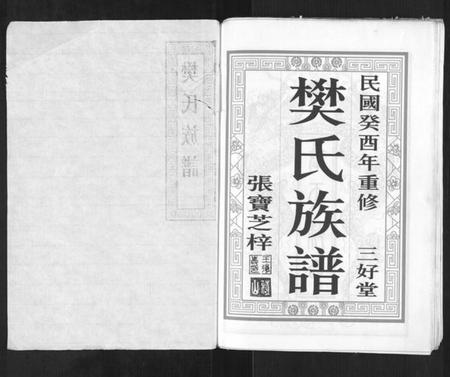 民國癸酉年重修 三好堂
樊氏族譜
張寶芝梓
樊氏族譜